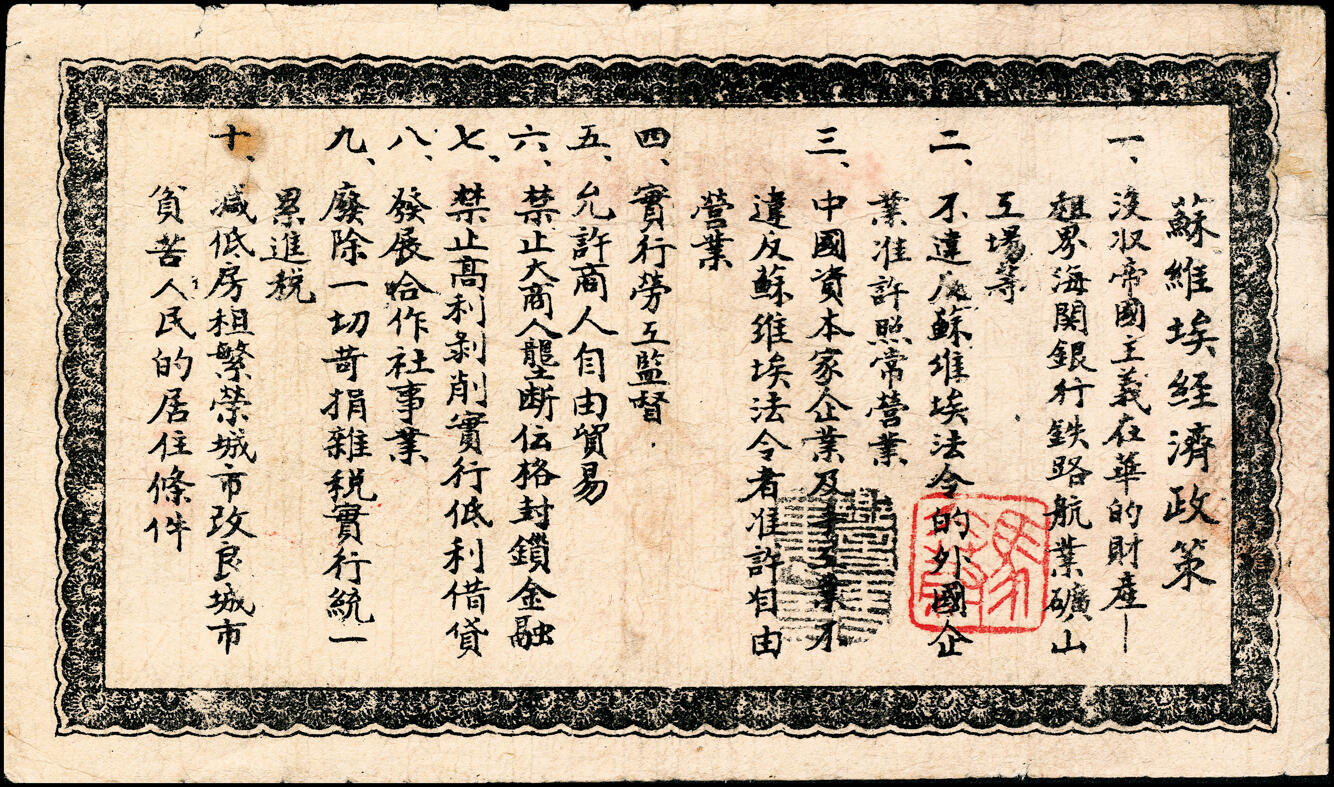 蘇維埃經濟政策
一、沒收帝國主義在華的財產—
租界海関銀行鉄路航業礦山
工場等
二、不違反蘇維埃法令的外國企
業准許照常營業
三、中國資本家企業及手工業不
違反蘇維埃法令者准許自由
營業
四、實行勞工監督.
五、允許商人自由貿易
六、禁止大商人壟断伝格封鎖金融
七、禁止高利剝削實行低利借貸
八、發展合作社事業
九、廢除一切苛捐雜税實行統一
累進税
十、減低房租繁榮城市改良城市
貧苦人民的居住條件